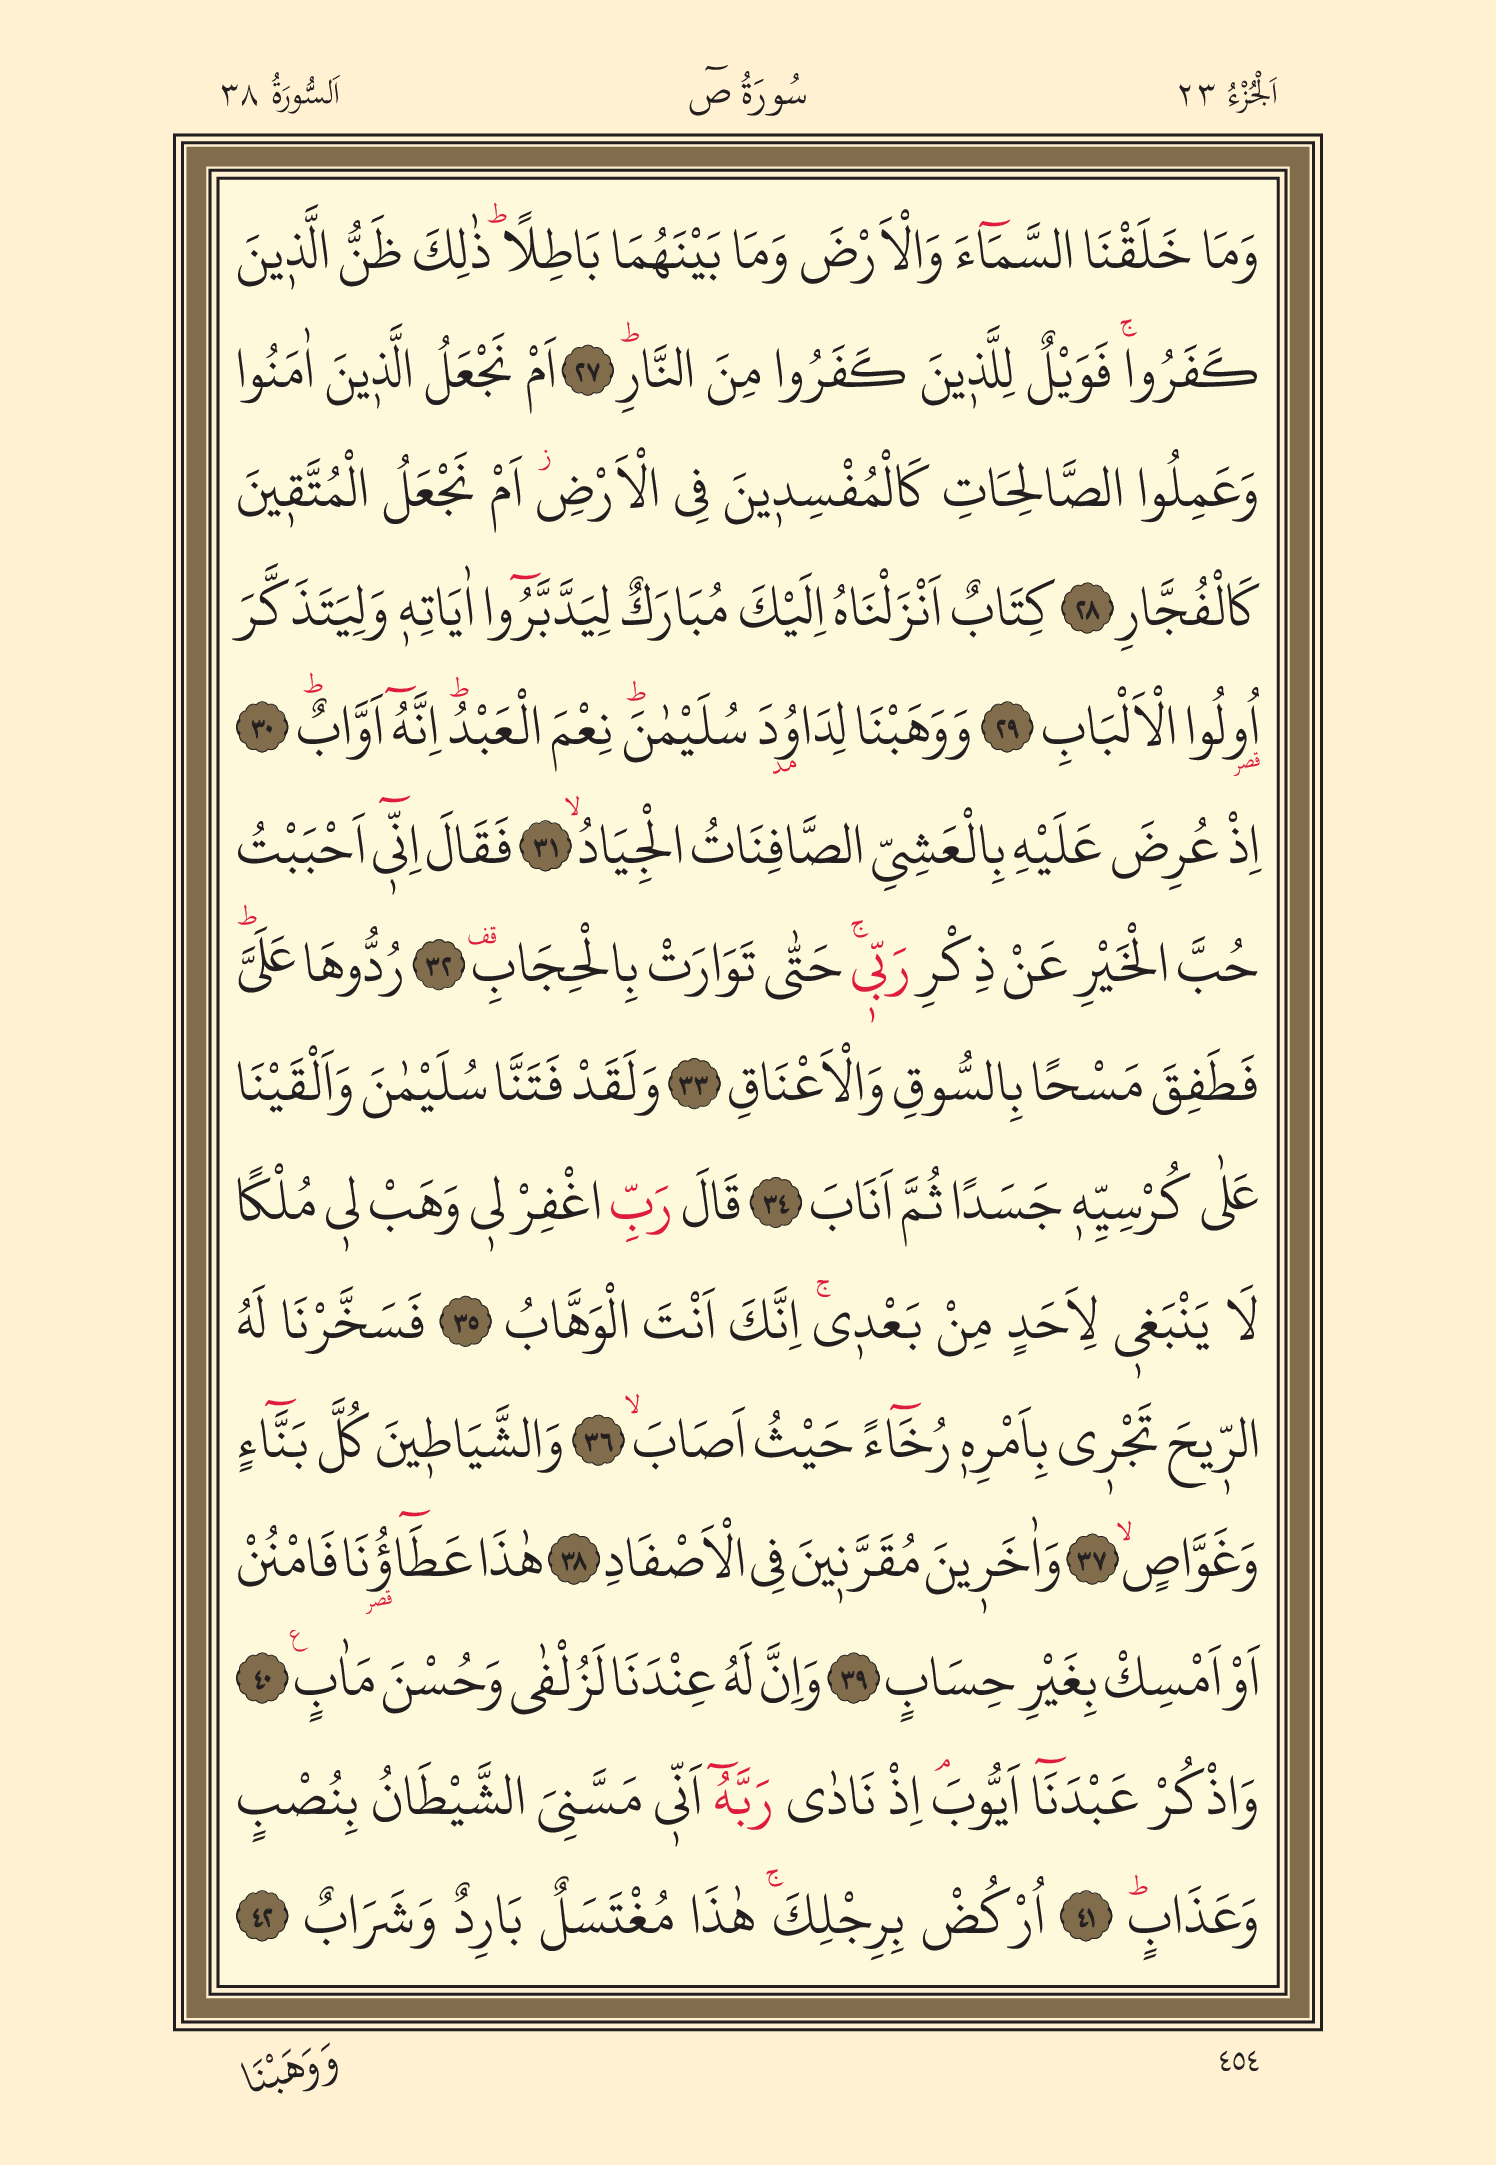 اَلْجُزْءُ ٢٣ سُورَةُ صۤ اَلسُّورَةُ ٣٨
وَمَا خَلَقْنَا السَّمَٓاءَ وَالْاَرْضَ وَمَا بَيْنَهُمَا بَاطِلًاۜ ذٰلِكَ ظَنُّ الَّذ۪ينَ
كَفَرُواۚ فَوَيْلٌ لِلَّذ۪ينَ كَفَرُوا مِنَ النَّارِۜ ﴿٢٧﴾ اَمْ نَجْعَلُ الَّذ۪ينَ اٰمَنُوا
وَعَمِلُوا الصَّالِحَاتِ كَالْمُفْسِد۪ينَ فِي الْاَرْضِۘ اَمْ نَجْعَلُ الْمُتَّق۪ينَ
كَالْفُجَّارِ ﴿٢٨﴾ كِتَابٌ اَنْزَلْنَاهُ اِلَيْكَ مُبَارَكٌ لِيَدَّبَّرُٓوا اٰيَاتِه۪ وَلِيَتَذَكَّرَ
اُو۬لُوا الْاَلْبَابِ ﴿٢٩﴾ وَوَهَبْنَا لِدَاوُ۫دَ سُلَيْمٰنَۜ نِعْمَ الْعَبْدُۜ اِنَّهُٓ اَوَّابٌۜ ﴿٣٠﴾
اِذْ عُرِضَ عَلَيْهِ بِالْعَشِيِّ الصَّافِنَاتُ الْجِيَادُۙ ﴿٣١﴾ فَقَالَ اِنّ۪ٓي اَحْبَبْتُ
حُبَّ الْخَيْرِ عَنْ ذِكْرِ رَبّ۪يۚ حَتّٰى تَوَارَتْ بِالْحِجَابِ۠ قف ﴿٣٢﴾ رُدُّوهَا عَلَيَّۜ
فَطَفِقَ مَسْحًا بِالسُّوقِ وَالْاَعْنَاقِ ﴿٣٣﴾ وَلَقَدْ فَتَنَّا سُلَيْمٰنَ وَاَلْقَيْنَا
عَلٰى كُرْسِيِّه۪ جَسَدًا ثُمَّ اَنَابَ ﴿٣٤﴾ قَالَ رَبِّ اغْفِرْ ل۪ي وَهَبْ ل۪ي مُلْكًا
لَا يَنْبَغ۪ي لِاَحَدٍ مِنْ بَعْد۪يۚ اِنَّكَ اَنْتَ الْوَهَّابُ ﴿٣٥﴾ فَسَخَّرْنَا لَهُ
الرّ۪يحَ تَجْر۪ي بِاَمْرِه۪ رُخَٓاءً حَيْثُ اَصَابَۙ ﴿٣٦﴾ وَالشَّيَاط۪ينَ كُلَّ بَنَّٓاءٍ
وَغَوَّاصٍۙ ﴿٣٧﴾ وَاٰخَر۪ينَ مُقَرَّن۪ينَ فِي الْاَصْفَادِ ﴿٣٨﴾ هٰذَا عَطَٓاؤُ۬نَا فَامْنُنْ
اَوْ اَمْسِكْ بِغَيْرِ حِسَابٍ ﴿٣٩﴾ وَاِنَّ لَهُ عِنْدَنَا لَزُلْفٰى وَحُسْنَ مَاٰبٍ۟ ﴿٤٠﴾
وَاذْكُرْ عَبْدَنَٓا اَيُّوبَۢ اِذْ نَادٰى رَبَّهُٓ اَنّ۪ي مَسَّنِيَ الشَّيْطَانُ بِنُصْبٍ
وَعَذَابٍۜ ﴿٤١﴾ اُرْكُضْ بِرِجْلِكَۚ هٰذَا مُغْتَسَلٌ بَارِدٌ وَشَرَابٌ ﴿٤٢﴾
٤٥٤ وَوَهَبْنَا